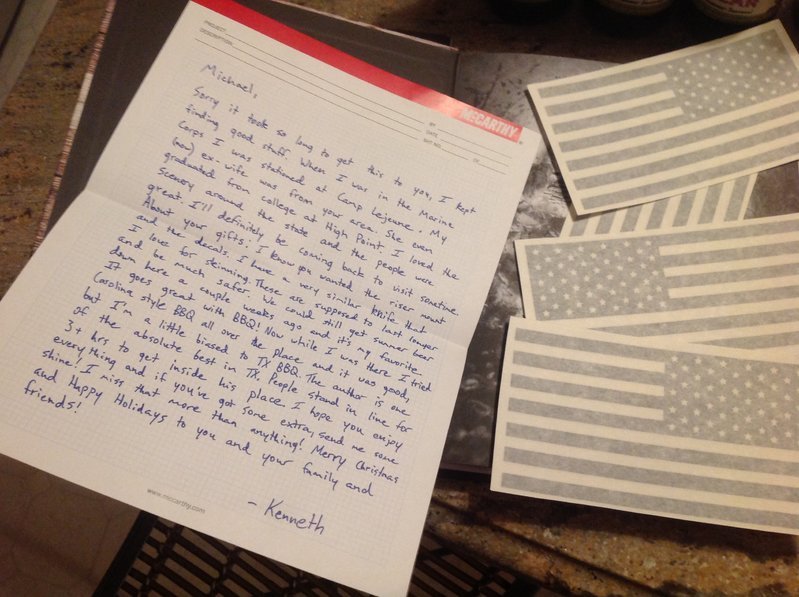 PROJECT:
DESCRIPTION:
McCARTHY
BY:
DATE:
SHT NO. OF
Michael,
Sorry it took so long to get this to you, I kept
finding good stuff. When I was in the Marine
Corps I was stationed at Camp Lejeune. My
(now) ex-wife was from your area. She even
graduated from college at High Point. I loved the
scenery around the state and the people were
great. I'll definitely be coming back to visit sometime.
About your gifts; I know you wanted the riser mount
and the decals. I have a very similar knife that
I love for skinning. These are supposed to last longer
and be much safer. We could still get summer beer
down here a couple weeks ago and it's my favorite.
It goes great with BBQ! Now while I was there I tried
Carolina style BBQ all over the place and it was good,
but I'm a little biased to TX BBQ. The author is one
of the absolute best in TX. People stand in line for
3+ hrs to get inside his place. I hope you enjoy
everything and if you've got some extra, send me some
shine! I miss that more than anything! Merry Christmas
and Happy Holidays to you and your family and
friends!
- Kenneth
www.mccarthy.com